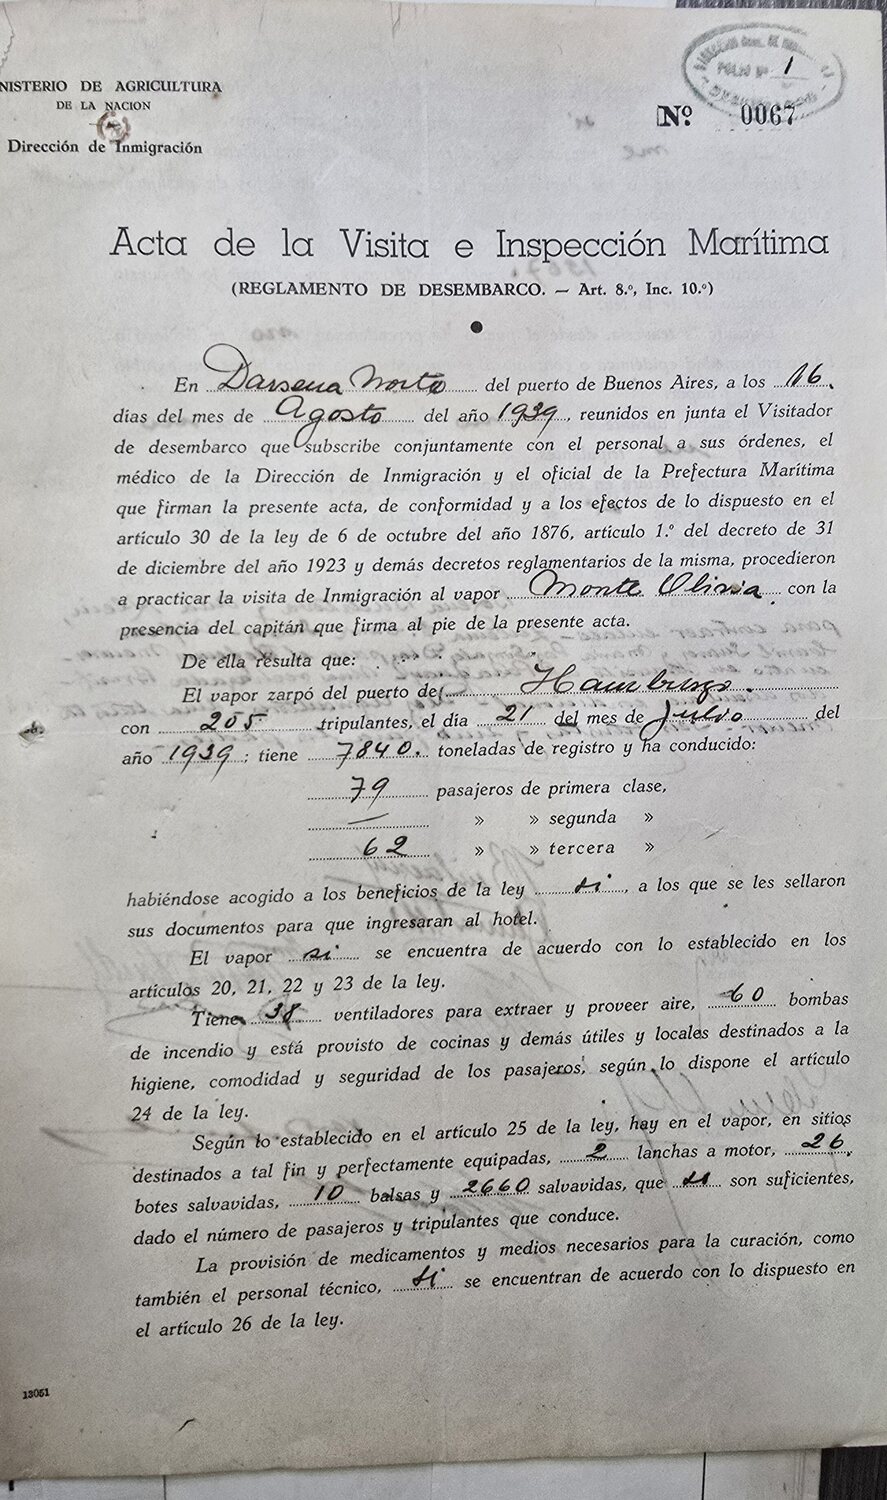 NISTERIO DE AGRICULTURA
DE LA NACION
Dirección de Inmigración
FOLIO Nº 1
Nº 0067
Acta de la Visita e Inspección Marítima
(REGLAMENTO DE DESEMBARCO. — Art. 8.º, Inc. 10.º)
En Darsena Norte del puerto de Buenos Aires, a los 16
días del mes de Agosto del año 1939, reunidos en junta el Visitador
de desembarco que subscribe conjuntamente con el personal a sus órdenes, el
médico de la Dirección de Inmigración y el oficial de la Prefectura Marítima
que firman la presente acta, de conformidad y a los efectos de lo dispuesto en el
artículo 30 de la ley de 6 de octubre del año 1876, artículo 1.º del decreto de 31
de diciembre del año 1923 y demás decretos reglamentarios de la misma, procedieron
a practicar la visita de Inmigración al vapor Monte Olivia con la
presencia del capitán que firma al pie de la presente acta.
De ella resulta que:
El vapor zarpó del puerto de Hamburgo
con 205 tripulantes, el día 21 del mes de Julio del
año 1939; tiene 7840 toneladas de registro y ha conducido:
79 pasajeros de primera clase,
— » » segunda »
62 » » tercera »
habiéndose acogido a los beneficios de la ley si, a los que se les sellaron
sus documentos para que ingresaran al hotel.
El vapor si se encuentra de acuerdo con lo establecido en los
artículos 20, 21, 22 y 23 de la ley.
Tiene 38 ventiladores para extraer y proveer aire, 60 bombas
de incendio y está provisto de cocinas y demás útiles y locales destinados a la
higiene, comodidad y seguridad de los pasajeros, según lo dispone el artículo
24 de la ley.
Según lo establecido en el artículo 25 de la ley, hay en el vapor, en sitios
destinados a tal fin y perfectamente equipadas, 2 lanchas a motor, 26
botes salvavidas, 10 balsas y 2660 salvavidas, que si son suficientes,
dado el número de pasajeros y tripulantes que conduce.
La provisión de medicamentos y medios necesarios para la curación, como
también el personal técnico, si se encuentran de acuerdo con lo dispuesto en
el artículo 26 de la ley.
13051